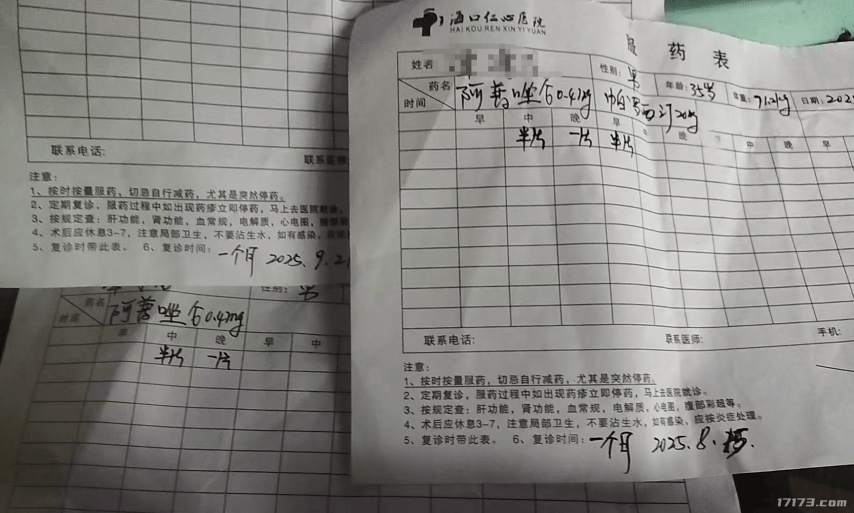 海口仁心医院
HAI KOU REN XIN YI YUAN
服 药 表
姓名 性别: 男 年龄: 35岁 体重: 71.2kg 日期: 202
药名 阿普唑仑0.4mg 帕罗西汀20mg
时间 早 中 晚 早 中 晚 早 中 晚 早 中
半片 一片 半片
联系电话: 联系医师: 手机:
注意:
1、按时按量服药，切忌自行减药，尤其是突然停药。
2、定期复诊，服药过程中如出现药疹立即停药，马上去医院就诊。
3、按规定查：肝功能，肾功能，血常规，电解质，心电图，腹部彩超等。
4、术后应休息3-7，注意局部卫生，不要沾生水，如有感染，应按炎症处理。
5、复诊时带此表。 6、复诊时间: 一个月 2025.8.
联系电话: 联系医师:
注意:
1、按时按量服药，切忌自行减药，尤其是突然停药。
2、定期复诊，服药过程中如出现药疹立即停药，马上去医院就诊。
3、按规定查：肝功能，肾功能，血常规，电解质，心电图，
4、术后应休息3-7，注意局部卫生，不要沾生水，如有感染，
5、复诊时带此表。 6、复诊时间: 一个月 2025.9.21
性别: 男
药名 阿普唑仑0.4mg
时间 早 中 晚 早 中
半片 一片
17173.com